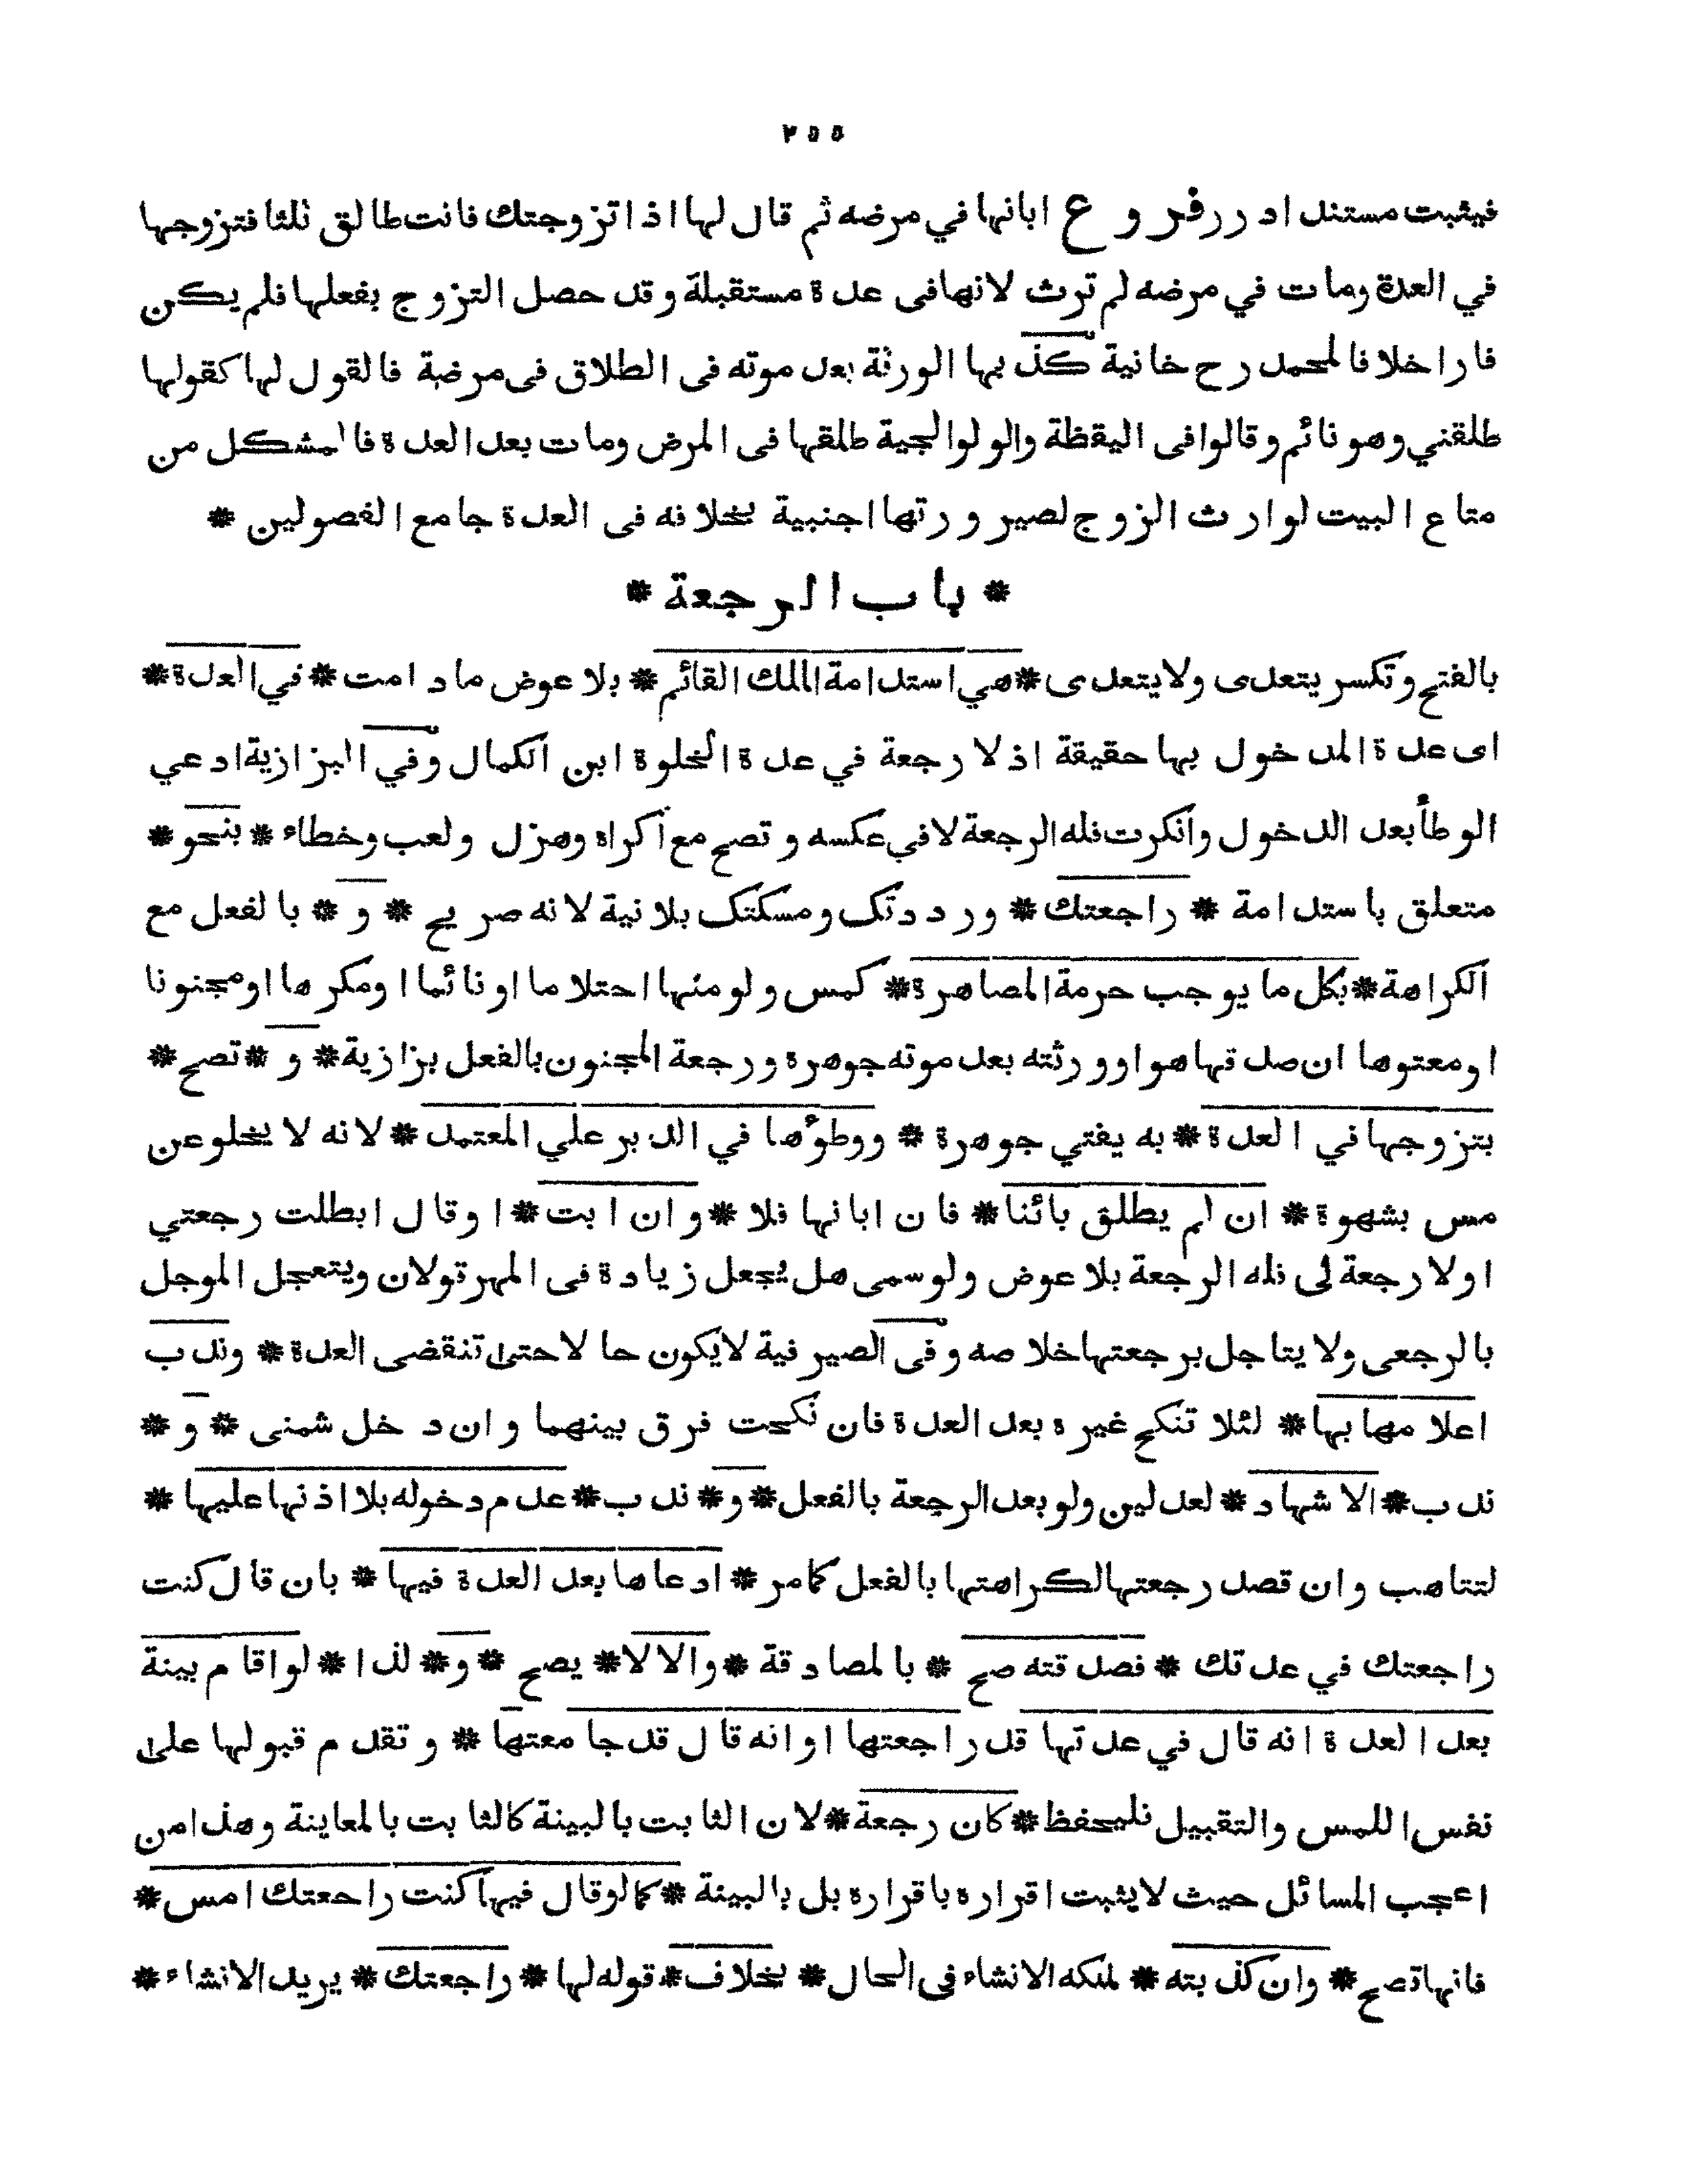 ٢٥٥
فيثبت مستندا درر فروع ابانها في مرضه ثم قال لها اذا تزوجتك فانت طالق ثلثا فتزوجها
في العدة ومات في مرضه لم ترث لانها فى عدة مستقبلة وقد حصل التزوج بفعلها فلم يكن
فارا خلافا لمحمد رح خانية كذبها الورثة بعد موته فى الطلاق فى مرضة فالقول لها كقولها
طلقني وهو نائم وقالوا فى اليقظة والولوالجية طلقها فى المرض ومات بعد العدة فالمشكل من
متاع البيت لوارث الزوج لصيرورتها اجنبية بخلافه فى العدة جامع الفصولين *
* باب الرجعة *
بالفتح وتكسر يتعدى ولا يتعدى * هي استدامة الملك القائم * بلا عوض ما دامت * في العدة *
اى عدة المدخول بها حقيقة اذ لا رجعة في عدة الخلوة ابن الكمال وفي البزازية ادعي
الوطأ بعد الدخول وانكرت فله الرجعة لا في عكسه وتصح مع اكراه وهزل ولعب وخطاء * بنحو *
متعلق باستدامة * راجعتك * ورددتك ومسكتك بلا نية لانه صريح * و * بالفعل مع
الكراهة * بكل ما يوجب حرمة المصاهرة * كمس ولو منها احتلاما او نائما او مكرها او مجنونا
او معتوها ان صدقها هو او ورثته بعد موته جوهرة ورجعة المجنون بالفعل بزازية * و * تصح *
بتزوجها في العدة * به يفتي جوهرة * ووطؤها في الدبر علي المعتمد * لانه لا يخلو عن
مس بشهوة * ان لم يطلق بائنا * فان ابانها فلا * وان ابت * او قال ابطلت رجعتي
او لا رجعة لى فله الرجعة بلا عوض ولو سمى هل يجعل زيادة فى المهر قولان ويتعجل الموجل
بالرجعى ولا يتاجل برجعتها خلاصه وفى الصيرفية لا يكون حالا حتى تنقضى العدة * وندب
اعلامها بها * لئلا تنكح غيره بعد العدة فان نكحت فرق بينهما وان دخل شمنى * و *
ندب * الاشهاد * لعدلين ولو بعد الرجعة بالفعل * و * ندب * عدم دخوله بلا اذنها عليها *
لتتاهب وان قصد رجعتها لكراهتها بالفعل كما مر * ادعاها بعد العدة فيها * بان قال كنت
راجعتك في عدتك * فصدقته صح * بالمصادقة * والا لا * يصح * و * لذا * لو اقام بينة
بعد العدة انه قال في عدتها قد راجعتها او انه قال قد جامعتها * وتقدم قبولها على
نفس اللمس والتقبيل فليحفظ * كان رجعة * لان الثابت بالبينة كالثابت بالمعاينة وهذا من
اعجب المسائل حيث لا يثبت اقراره باقراره بل بالبينة * كما لو قال فيها كنت راجعتك امس *
فانها تصح * وان كذبته * لملكه الانشاء فى الحال * بخلاف * قوله لها * راجعتك * يريد الانشاء *